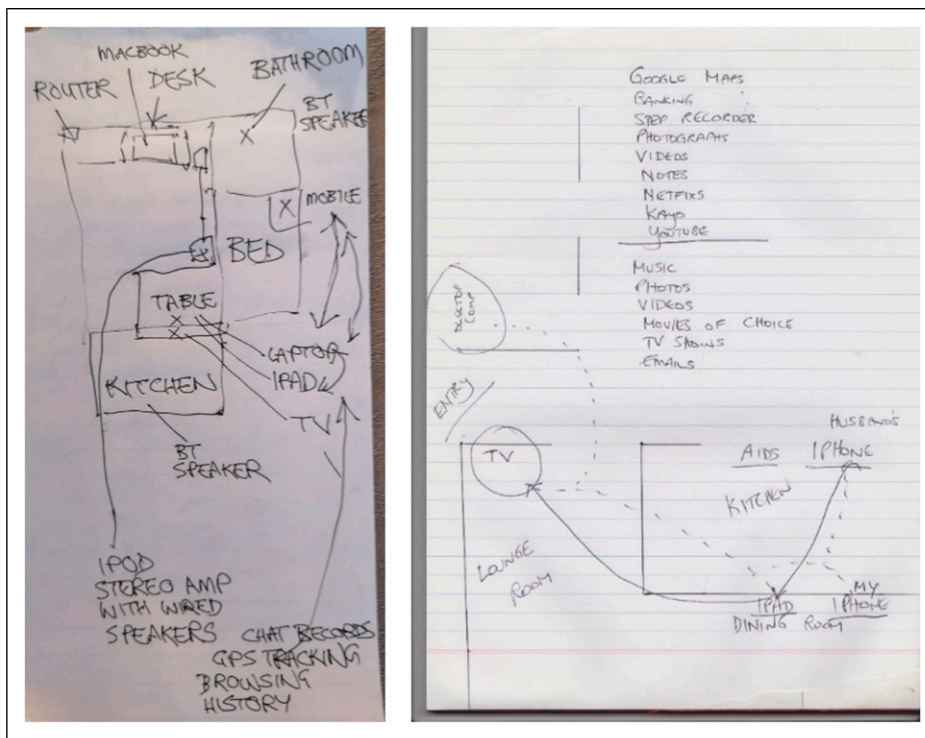 MACBOOK
ROUTER
DESK
BATHROOM
BT
SPEAKER
MOBILE
BED
TABLE
LAPTOP
IPAD
TV
KITCHEN
BT
SPEAKER
IPOD
STEREO AMP
WITH WIRED
SPEAKERS
CHAT RECORDS
GPS TRACKING
BROWSING
HISTORY
GOOGLE MAPS
BANKING
STEP RECORDER
PHOTOGRAPHS
VIDEOS
NOTES
NETFIXS
KAYO
YOUTUBE
MUSIC
PHOTOS
VIDEOS
MOVIES OF CHOICE
TV SHOWS
EMAILS
DESKTOP
COMP
ENTRY
TV
LOUNGE
ROOM
AIDS
KITCHEN
HUSBAND'S
IPHONE
IPAD
DINING ROOM
MY
IPHONE